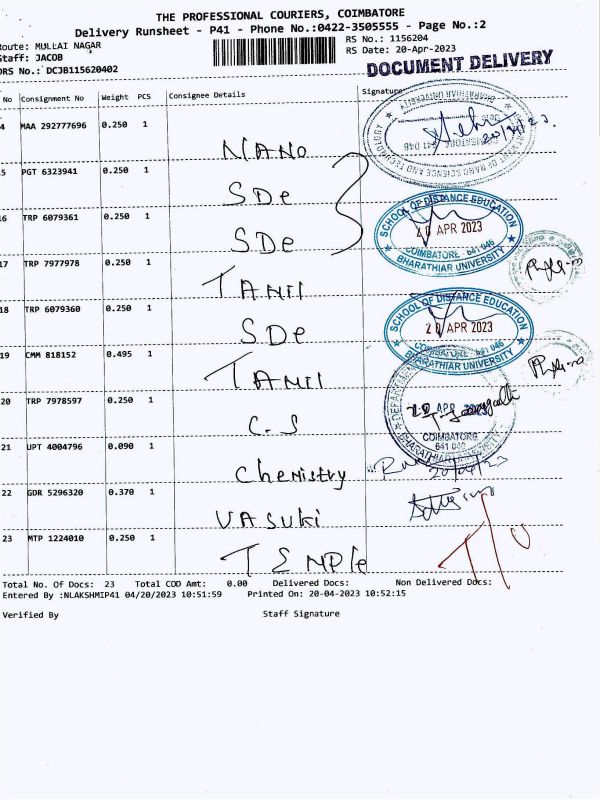 THE PROFESSIONAL COURIERS, COIMBATORE
Delivery Runsheet - P41 - Phone No.:0422-3505555 - Page No.:2
Route: MULLAI NAGAR
RS No.: 1156204
Staff: JACOB
RS Date: 20-Apr-2023
DRS No.: DCJB115620402
DOCUMENT DELIVERY
No Consignment No Weight PCS Consignee Details Signature
4 MAA 292777696 0.250 1 NANO
20/4/23
5 PGT 6323941 0.250 1 SDe
16 TRP 6079361 0.250 1 SDe
SCHOOL OF DISTANCE EDUCATION
20 APR 2023
COIMBATORE 641 046
BHARATHIAR UNIVERSITY
17 TRP 7977978 0.250 1 TAMIL
18 TRP 6079360 0.250 1 SDe
SCHOOL OF DISTANCE EDUCATION
20 APR 2023
COIMBATORE 641 046
BHARATHIAR UNIVERSITY
19 CMM 818152 0.495 1 TAMIL
20 TRP 7978597 0.250 1 C.S
COIMBATORE
641 046
BHARATHIAR UNIVERSITY
21 UPT 4004796 0.090 1 Chemistry
20/04/23
22 GDR 5296320 0.370 1 VASUKI
23 MTP 1224010 0.250 1 TEMPle
T/O
Total No. Of Docs: 23 Total COD Amt: 0.00 Delivered Docs: Non Delivered Docs:
Entered By :NLAKSHMIP41 04/20/2023 10:51:59 Printed On: 20-04-2023 10:52:15
Verified By Staff Signature